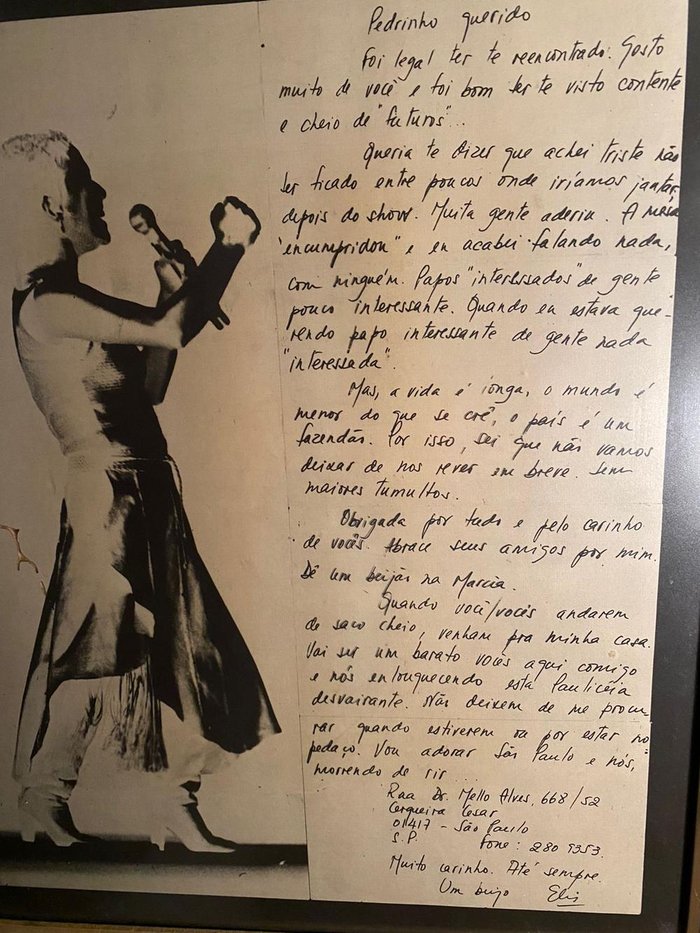 Pedrinho querido
Foi legal ter te reencontrado. Gosto
muito de você e foi bom ter te visto contente
e cheio de "futuros"...
Queria te dizer que achei triste não
ter ficado entre poucos onde iríamos jantar,
depois do show. Muita gente aderiu. A mesa
"encumpridou" e eu acabei falando nada,
com ninguém. Papos "interessados" de gente
pouco interessante. Quando eu estava que-
rendo papo interessante de gente nada
"interessada".
Mas, a vida é longa, o mundo é
menor do que se crê, o país é um
fazendão. Por isso, sei que não vamos
deixar de nos rever em breve. Sem
maiores tumultos.
Obrigada por tudo e pelo carinho
de vocês. Abrace seus amigos por mim.
Dê um beijão na Marcia.
Quando você/vocês andarem
de saco cheio, venham pra minha casa.
Vai ser um barato vocês aqui comigo
e nós enlouquecendo esta Paulicéia
desvairante. Não deixem de me procu
rar quando estiverem ou por estar no
pedaço. Vou adorar São Paulo e nós,
morrendo de rir...
Rua Dr. Mello Alves, 668/52
Cerqueira Cesar
01417 - São Paulo
S.P. Fone: 280 9353.
Muito carinho. Até sempre.
Um beijo Elis